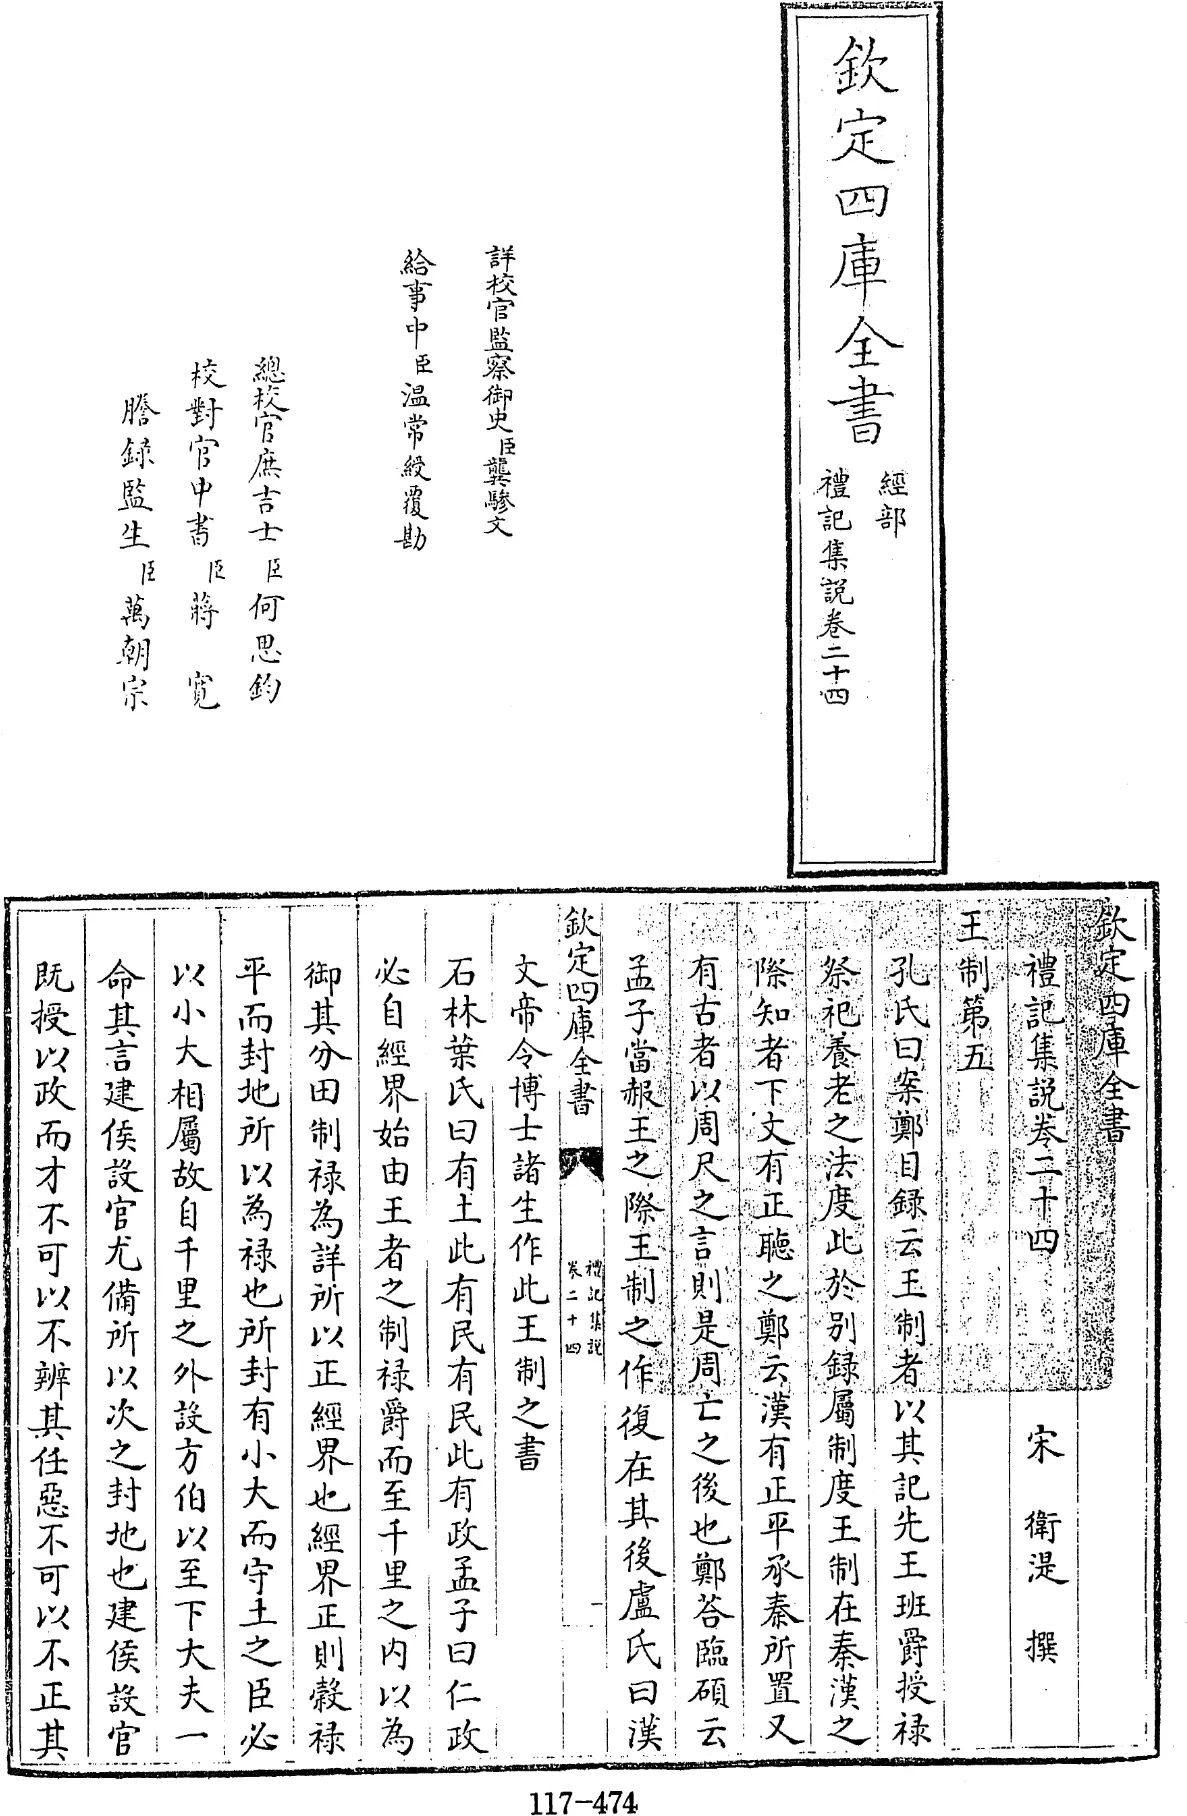 欽定四庫全書
經部
禮記集説卷二十四
詳校官監察御史臣龔驂文
給事中臣温常綬覆勘
總校官庶吉士臣何思鈞
校對官中書臣蔣寛
謄録監生臣萬朝宗
欽定四庫全書
禮記集説卷二十四
宋 衛湜 撰
王制第五
孔氏曰案鄭目録云王制者以其記先王班爵授禄
祭祀養老之法度此於别録屬制度王制在秦漢之
際知者下文有正聽之鄭云漢有正平承秦所置又
有古者以周尺之言則是周亡之後也鄭荅臨碩云
孟子當赧王之際王制之作復在其後盧氏曰漢
欽定四庫全書
禮記集説
卷二十四
一
文帝令博士諸生作此王制之書
石林葉氏曰有土此有民有民此有政孟子曰仁政
必自經界始由王者之制禄爵而至千里之内以為
御其分田制禄為詳所以正經界也經界正則穀禄
平而封地所以為禄也所封有小大而守土之臣必
以小大相屬故自千里之外設方伯以至下大夫一
命其言建侯設官尤備所以次之封地也建侯設官
既授以政而才不可以不辨其任惡不可以不正其
117-474